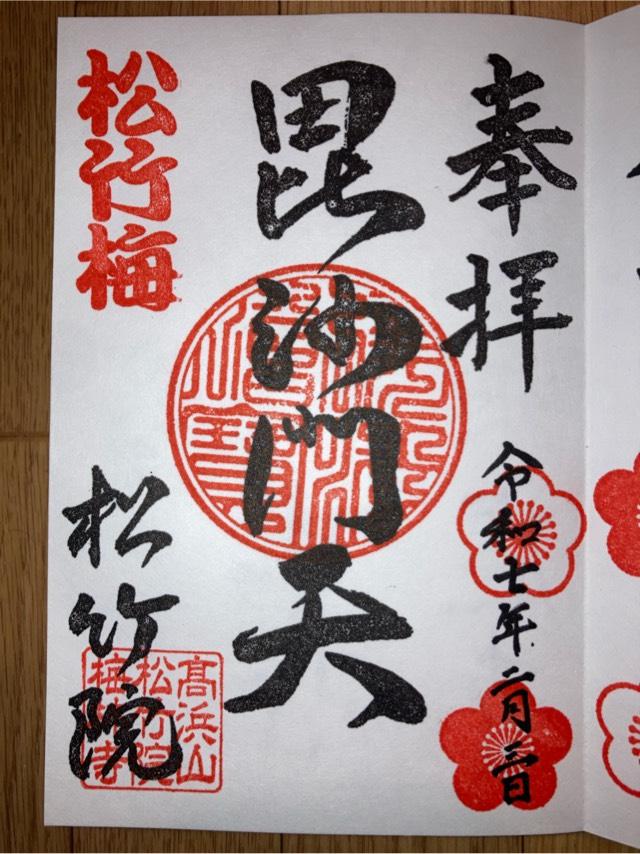 奉拝
令和七年二月三日
毘沙門天
松竹梅
松竹院
高浜山
松竹院